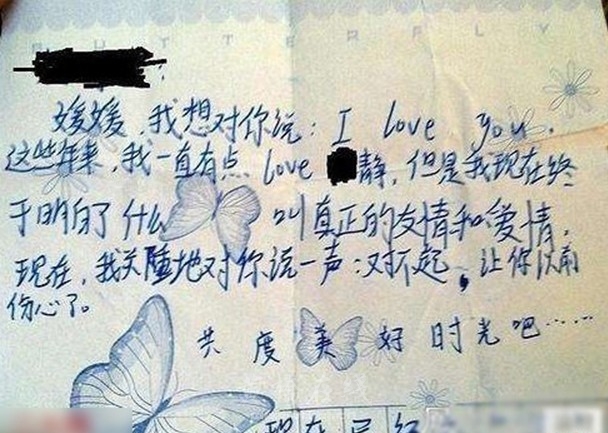 BUTTERFLY
媛媛,我想对你说:I love you.
这些年来,我一直有点 love 静,但是我现在终
于明白了什么叫真正的友情和爱情,
现在,我关陲地对你说一声:对不起,让你以前
伤心了。
共度美好时光吧……
现在